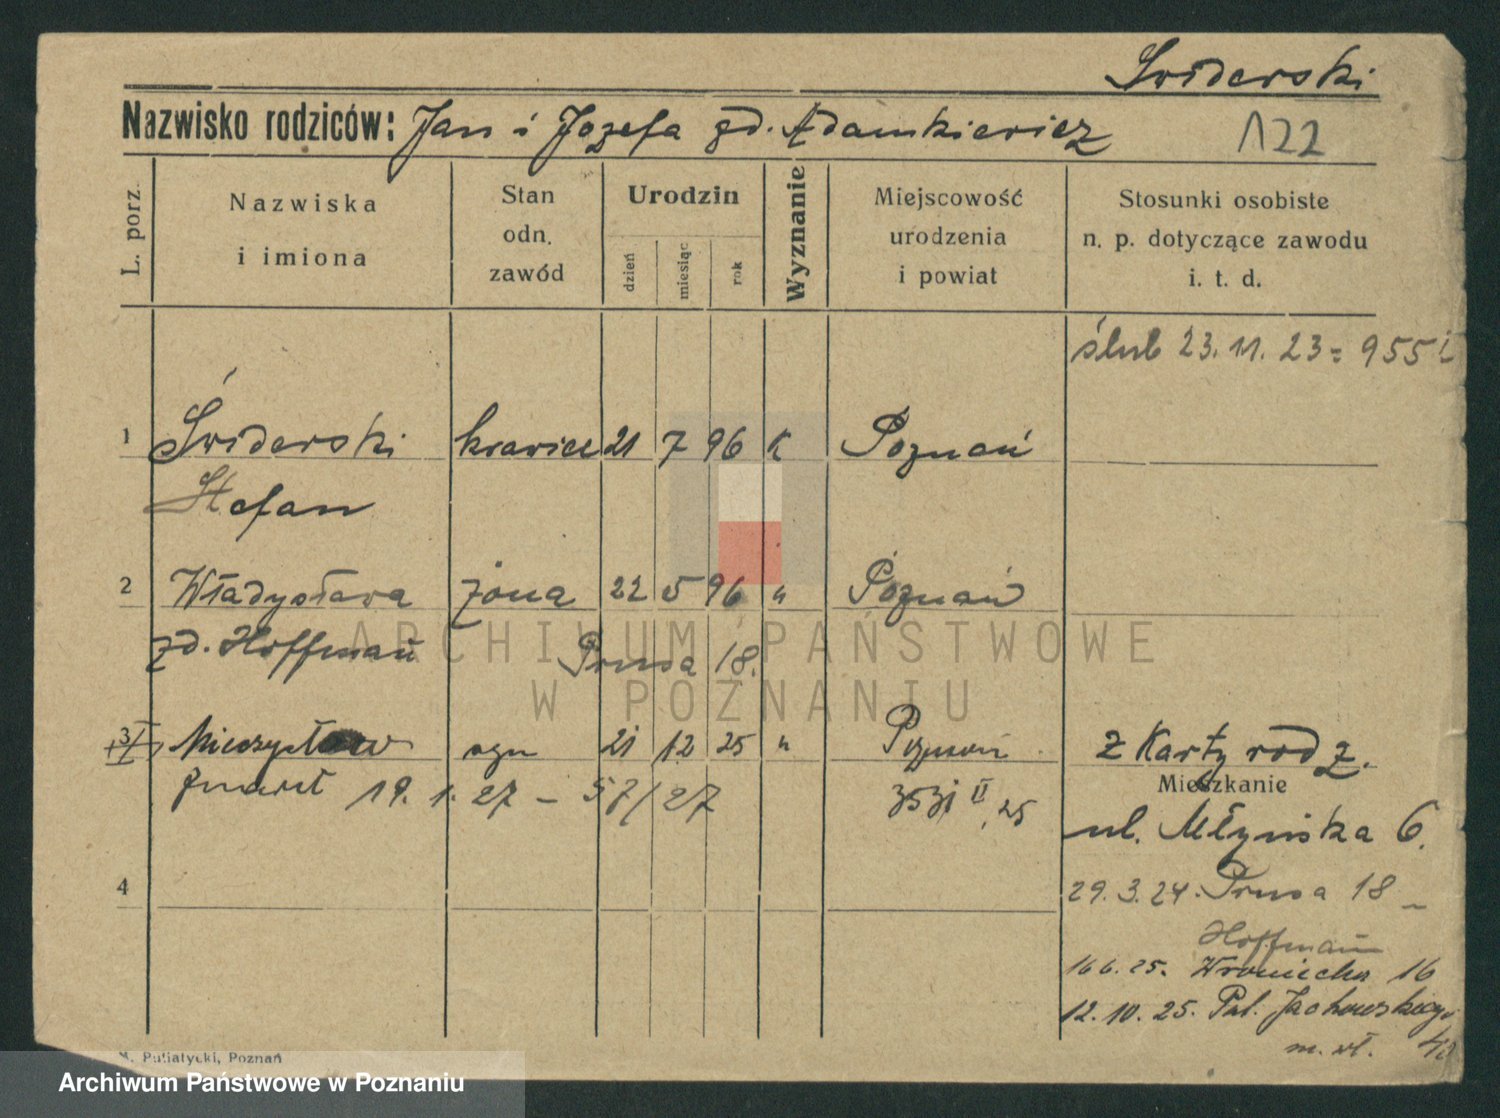 Świderski
Nazwisko rodziców: Jan i Józefa zd. Adamkiewicz 122
L. porz.
Nazwiska
i imiona
Stan
odn.
zawód
Urodzin
dzień
miesiąc
rok
Wyznanie
Miejscowość
urodzenia
i powiat
Stosunki osobiste
n. p. dotyczące zawodu
i. t. d.
ślub 23. 11. 23 = 955
1 Świderski krawiec 21 7 96 K Poznań
Stefan
2 Władysława żona 22 5 96 " Poznań
zd. Hoffmań Prusa 18.
3 Mieczysław syn 21 12 25 " Poznań z Karty rodz.
zmarł 19. 1. 27 – 57/27 3531 II. 25
Mieszkanie
ul. Młyńska 6.
4
29. 3. 24. Prusa 18 –
Hoffmań
16 6. 25. Wroniecka 16
12. 10. 25. Pat. Jackowskiego
m. wł.
M. Putiatycki, Poznań
ARCHIWUM PAŃSTWOWE
W POZNANIU
Archiwum Państwowe w Poznaniu